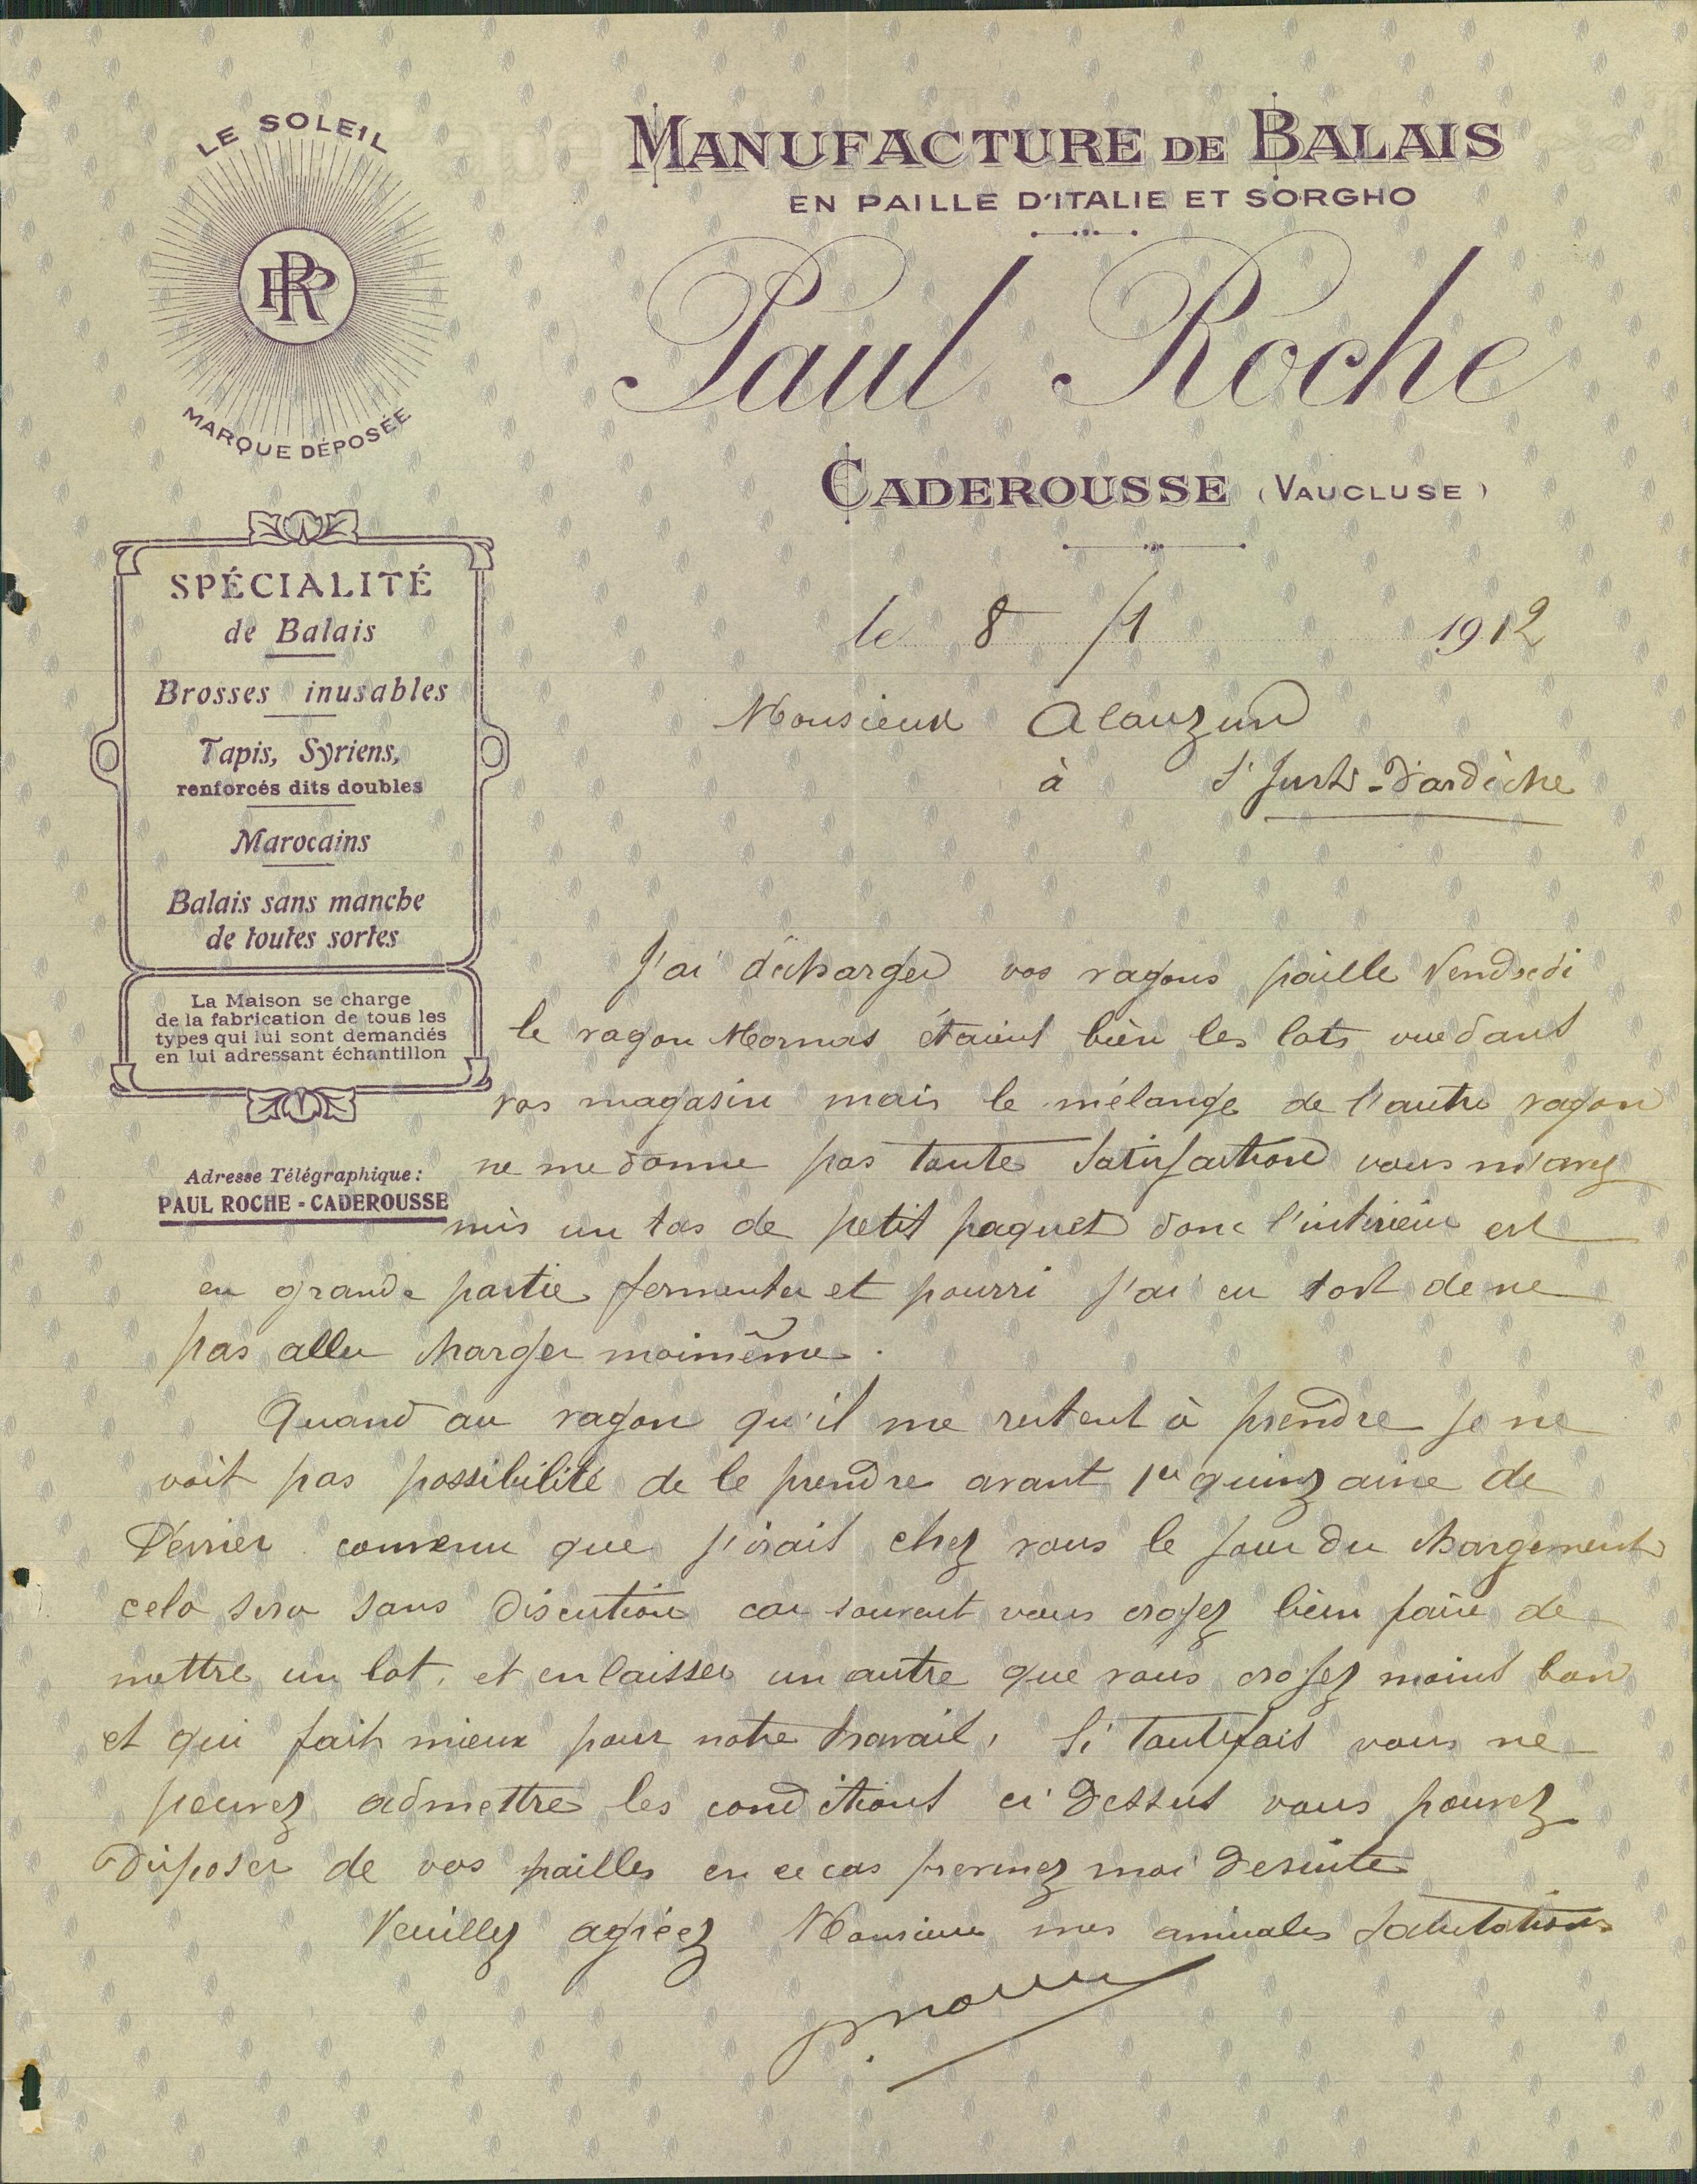 LE SOLEIL
PR
MARQUE DÉPOSÉE
MANUFACTURE DE BALAIS
EN PAILLE D'ITALIE ET SORGHO
Paul Roche
CADEROUSSE (VAUCLUSE)
SPÉCIALITÉ
de Balais
Brosses inusables
Tapis, Syriens,
renforcés dits doubles
Marocains
Balais sans manche
de toutes sortes
La Maison se charge
de la fabrication de tous les
types qui lui sont demandés
en lui adressant échantillon
Adresse Télégraphique :
PAUL ROCHE - CADEROUSSE
le 8 /1 1912
Monsieur Alauzun
à St Just-D'ardèche
J'ai décharger vos vagons paille Vendredi
le vagon Mornas étaient bien les lots vue dans
vos magasin mais le mélange de l'autre vagon
ne me donne pas toute satisfaction vous m'avez
mis un tas de petit paquet donc l'intérieur est
en grande partie fermenter et pourri j'ai eu tort de ne
pas aller charger moimême.
Quand au vagon qu'il me restent à prendre je ne
voit pas possibilité de le prendre avant 1er quinzaine de
Février convenu que j'irait chez vous le jour du chargement
cela sera sans discution car souvent vous croyez bien faire de
mettre un lot, et en laisser un autre que vous croyez moins bon
et qui fait mieux pour notre travail, Si toutefois vous ne
pouvez admettre les conditions ci dessus vous pouvez
disposer de vos pailles en ce cas prevenez moi desuite
Veuillez agréez Monsieur mes amicales salutations